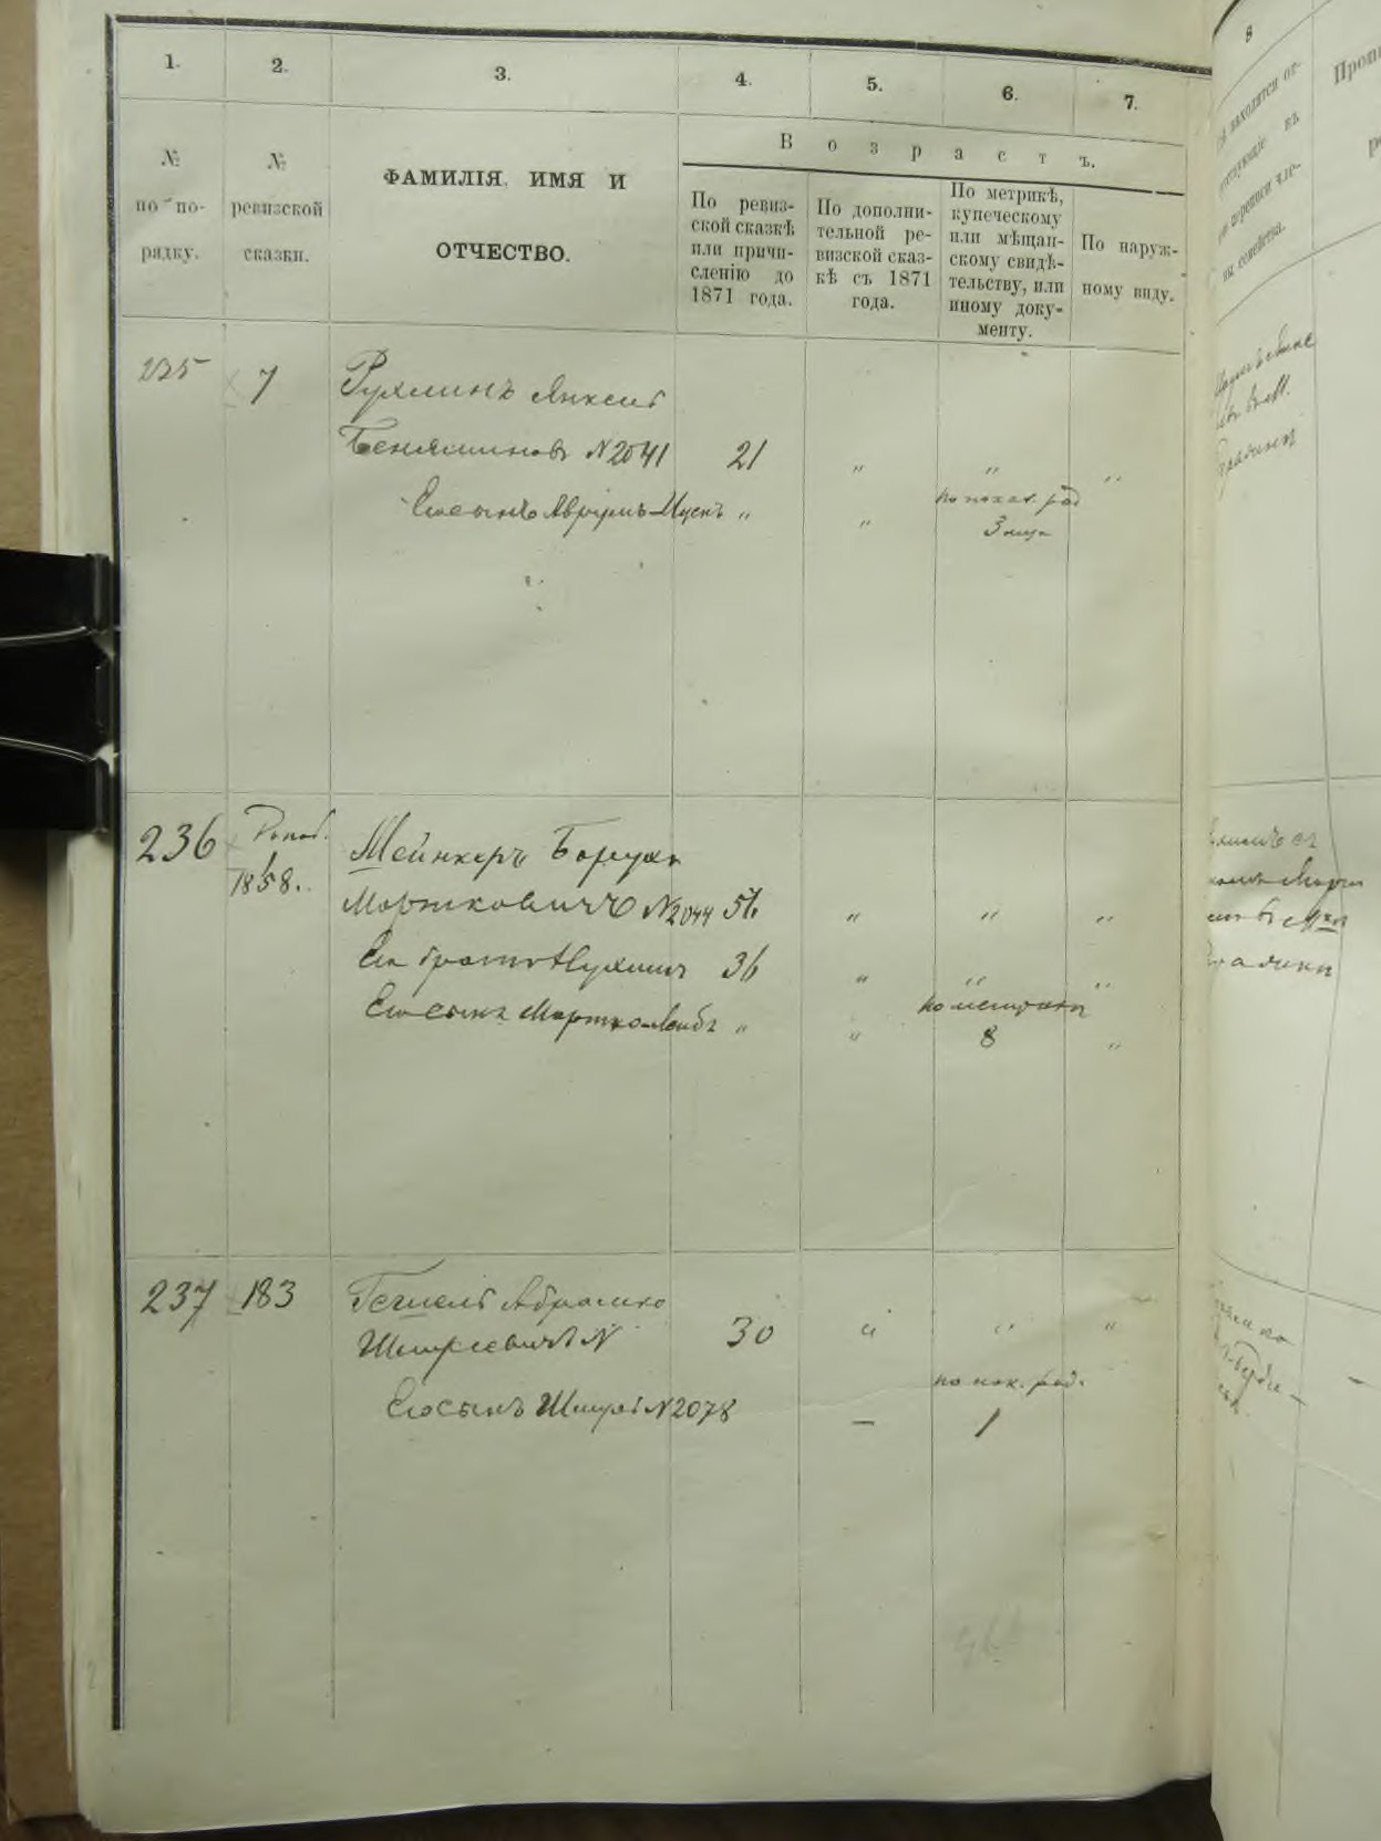 1.
2.
3.
4.
5.
6.
7.
8
№
по по-
рядку.
№
ревизской
сказки.
ФАМИЛІЯ, ИМЯ И
ОТЧЕСТВО.
Возрастъ.
По ревиз-
ской сказкѣ
или причи-
сленію до
1871 года.
По дополни-
тельной ре-
визской сказ-
кѣ съ 1871
года.
По метрикѣ,
купеческому
или мѣщан-
скому свидѣ-
тельству, или
иному доку-
менту.
По наруж-
ному виду.
235
7
Рухминъ Янкель
Беняминовъ №2041 21 " " "
Его сынъ Абрамъ-Ицекъ " "
по показ. род
3 мѣс
236
1858.
Мейнкеръ Борухъ
Мортковичъ №2044 " " "
Его братъ Нухимъ 36 " " "
Его сынъ Мортко-Лейбъ " "
по метрики
8 "
237
183
Абрамко
Шмулевичъ № 30 " " "
по пок. род.
Его сынъ Шмуль №2078 — 1